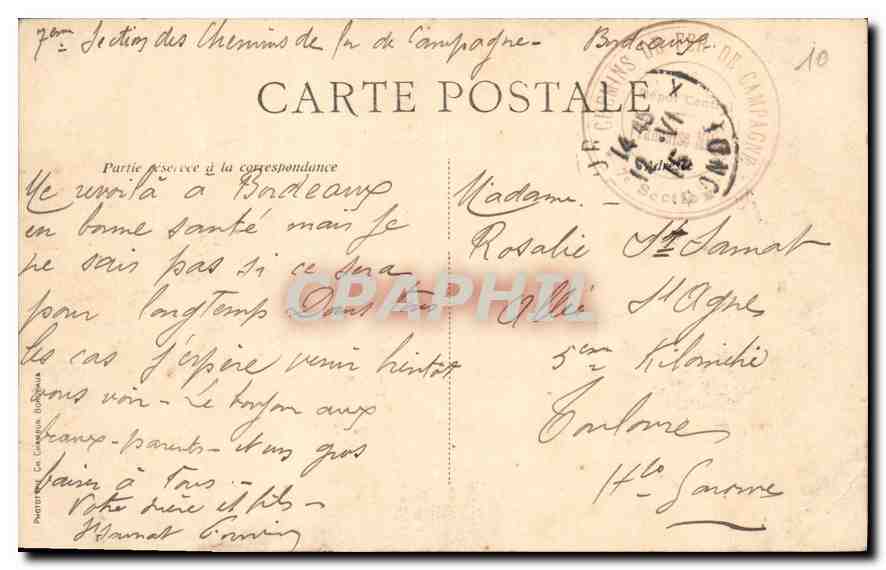 7eme Section des Chemins de fer de Campagne - Bordeaux.
10
CARTE POSTALE
CHEMINS DE FER DE CAMPAGNE
Dépôt Central
7e Section
14 45
12 VI
15
Partie réservée à la correspondance
Adresse
Me revoilà à Bordeaux
en bonne santé mais je
ne sais pas si ce sera
pour longtemp Dans tous
les cas j'espère venir bientôt
vous voir - Le bonjour aux
beaux-parents - et un gros
baiser à Tous -
Votre frère et fils -
St Sarnat
Madame -
Rosalie St Sarnat
Allée St Agne
5em Kilomètre
Toulouse
Hte Garonne
PHOTOTYPIE CH. CHAMBON BORDEAUX
CPAPHIL